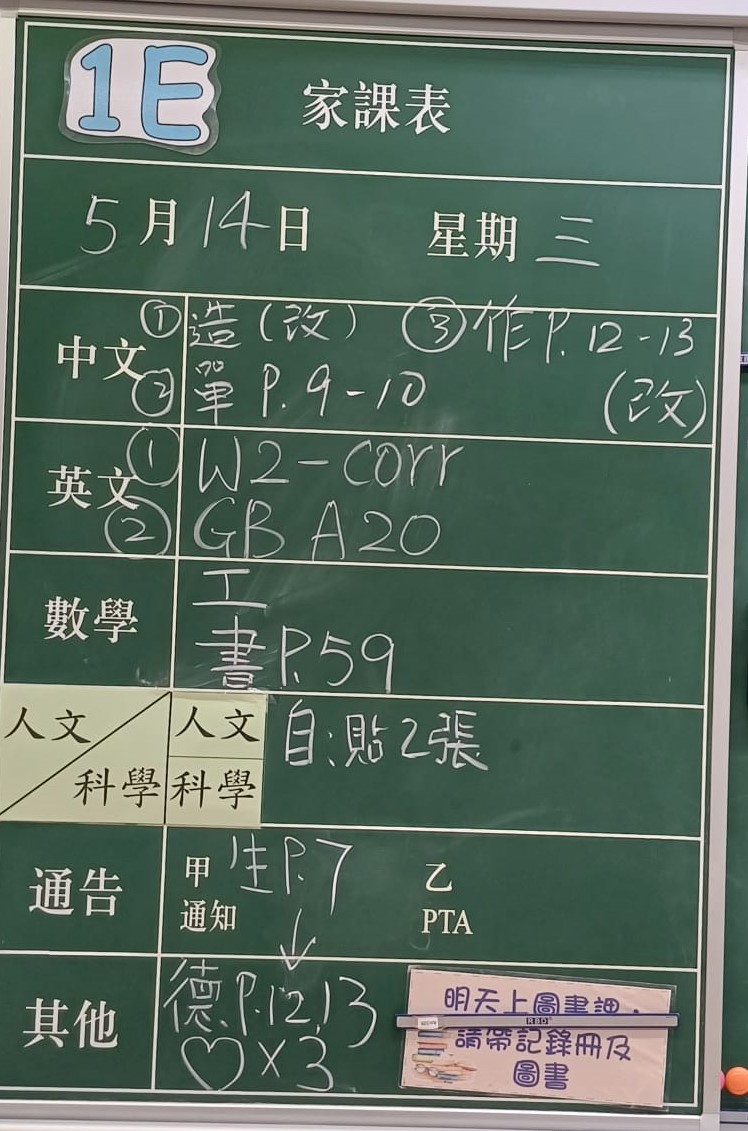 1E 家課表
5月14日 星期三
中文 ①造(改) ③作P.12-13
②單 P.9-10 (改)
英文 ① W2-corr
② GB A20
數學 工
書P.59
人文 人文 自:貼2張
科學 科學
通告 甲 生P.7 乙
通知 PTA
↓
其他 德.P.12,13
♡×3
明天上圖書課,
請帶記錄冊及
圖書